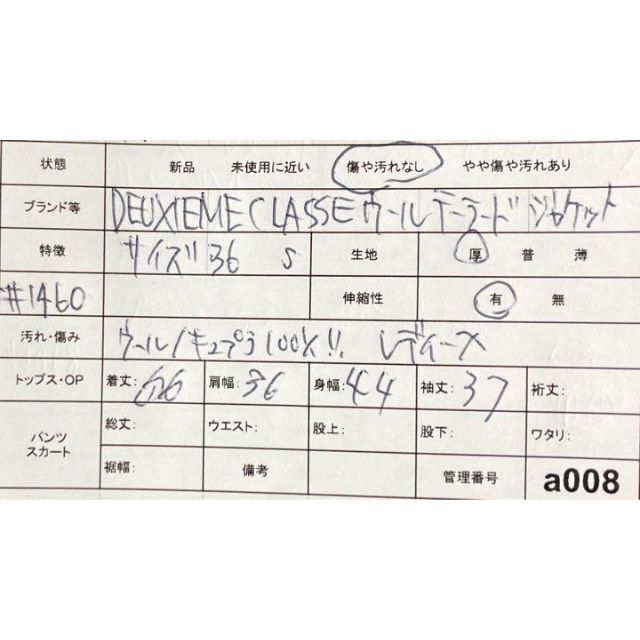 状態 新品 未使用に近い 傷や汚れなし やや傷や汚れあり
ブランド等 DEUXIEME CLASSE ウールテーラードジャケット
特徴 サイズ 36 S 生地 厚 普 薄
#1460 伸縮性 有 無
汚れ・傷み ウール/キュプラ100%!! レディース
トップス・OP 着丈: 66 肩幅: 36 身幅: 44 袖丈: 37 裄丈:
パンツ スカート 総丈: ウエスト: 股上: 股下: ワタリ:
裾幅: 備考 管理番号 a008